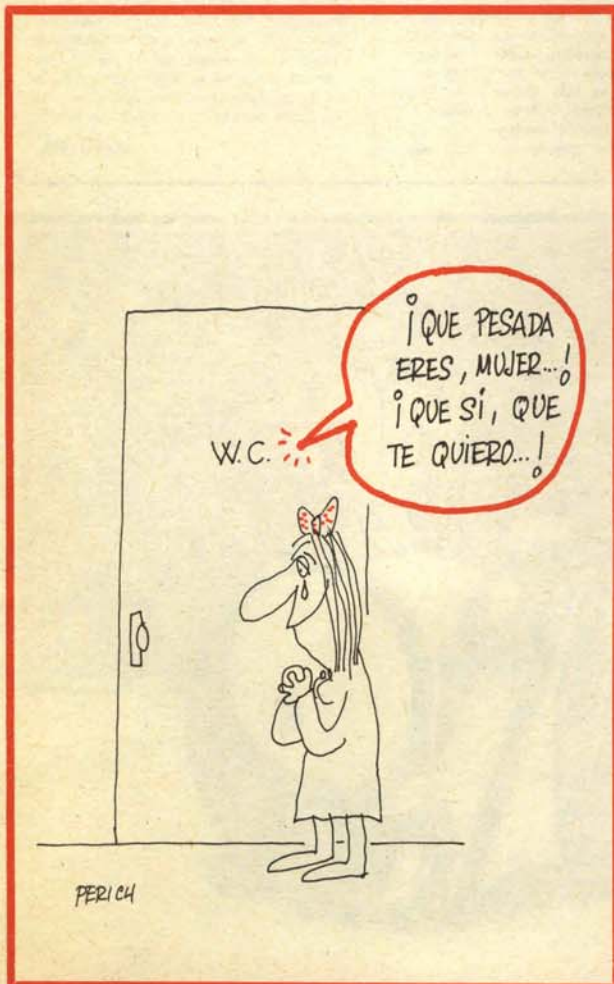 ¡QUE PESADA
ERES, MUJER...!
¡QUE SÍ, QUE
TE QUIERO...!
W.C.
PERICH